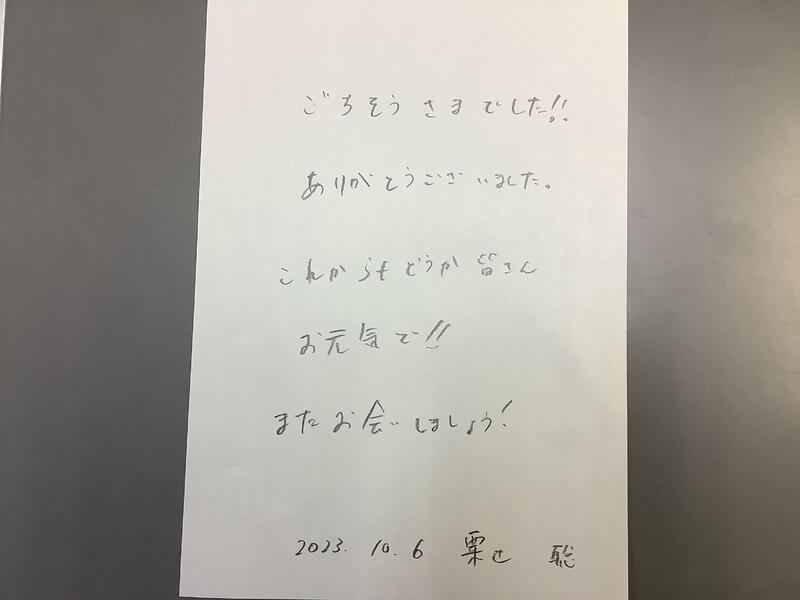 ごちそうさまでした!!
ありがとうございました。
これからもどうか皆さん
お元気で!!
またお会いしましょう!
2023. 10. 6 栗辻 聡